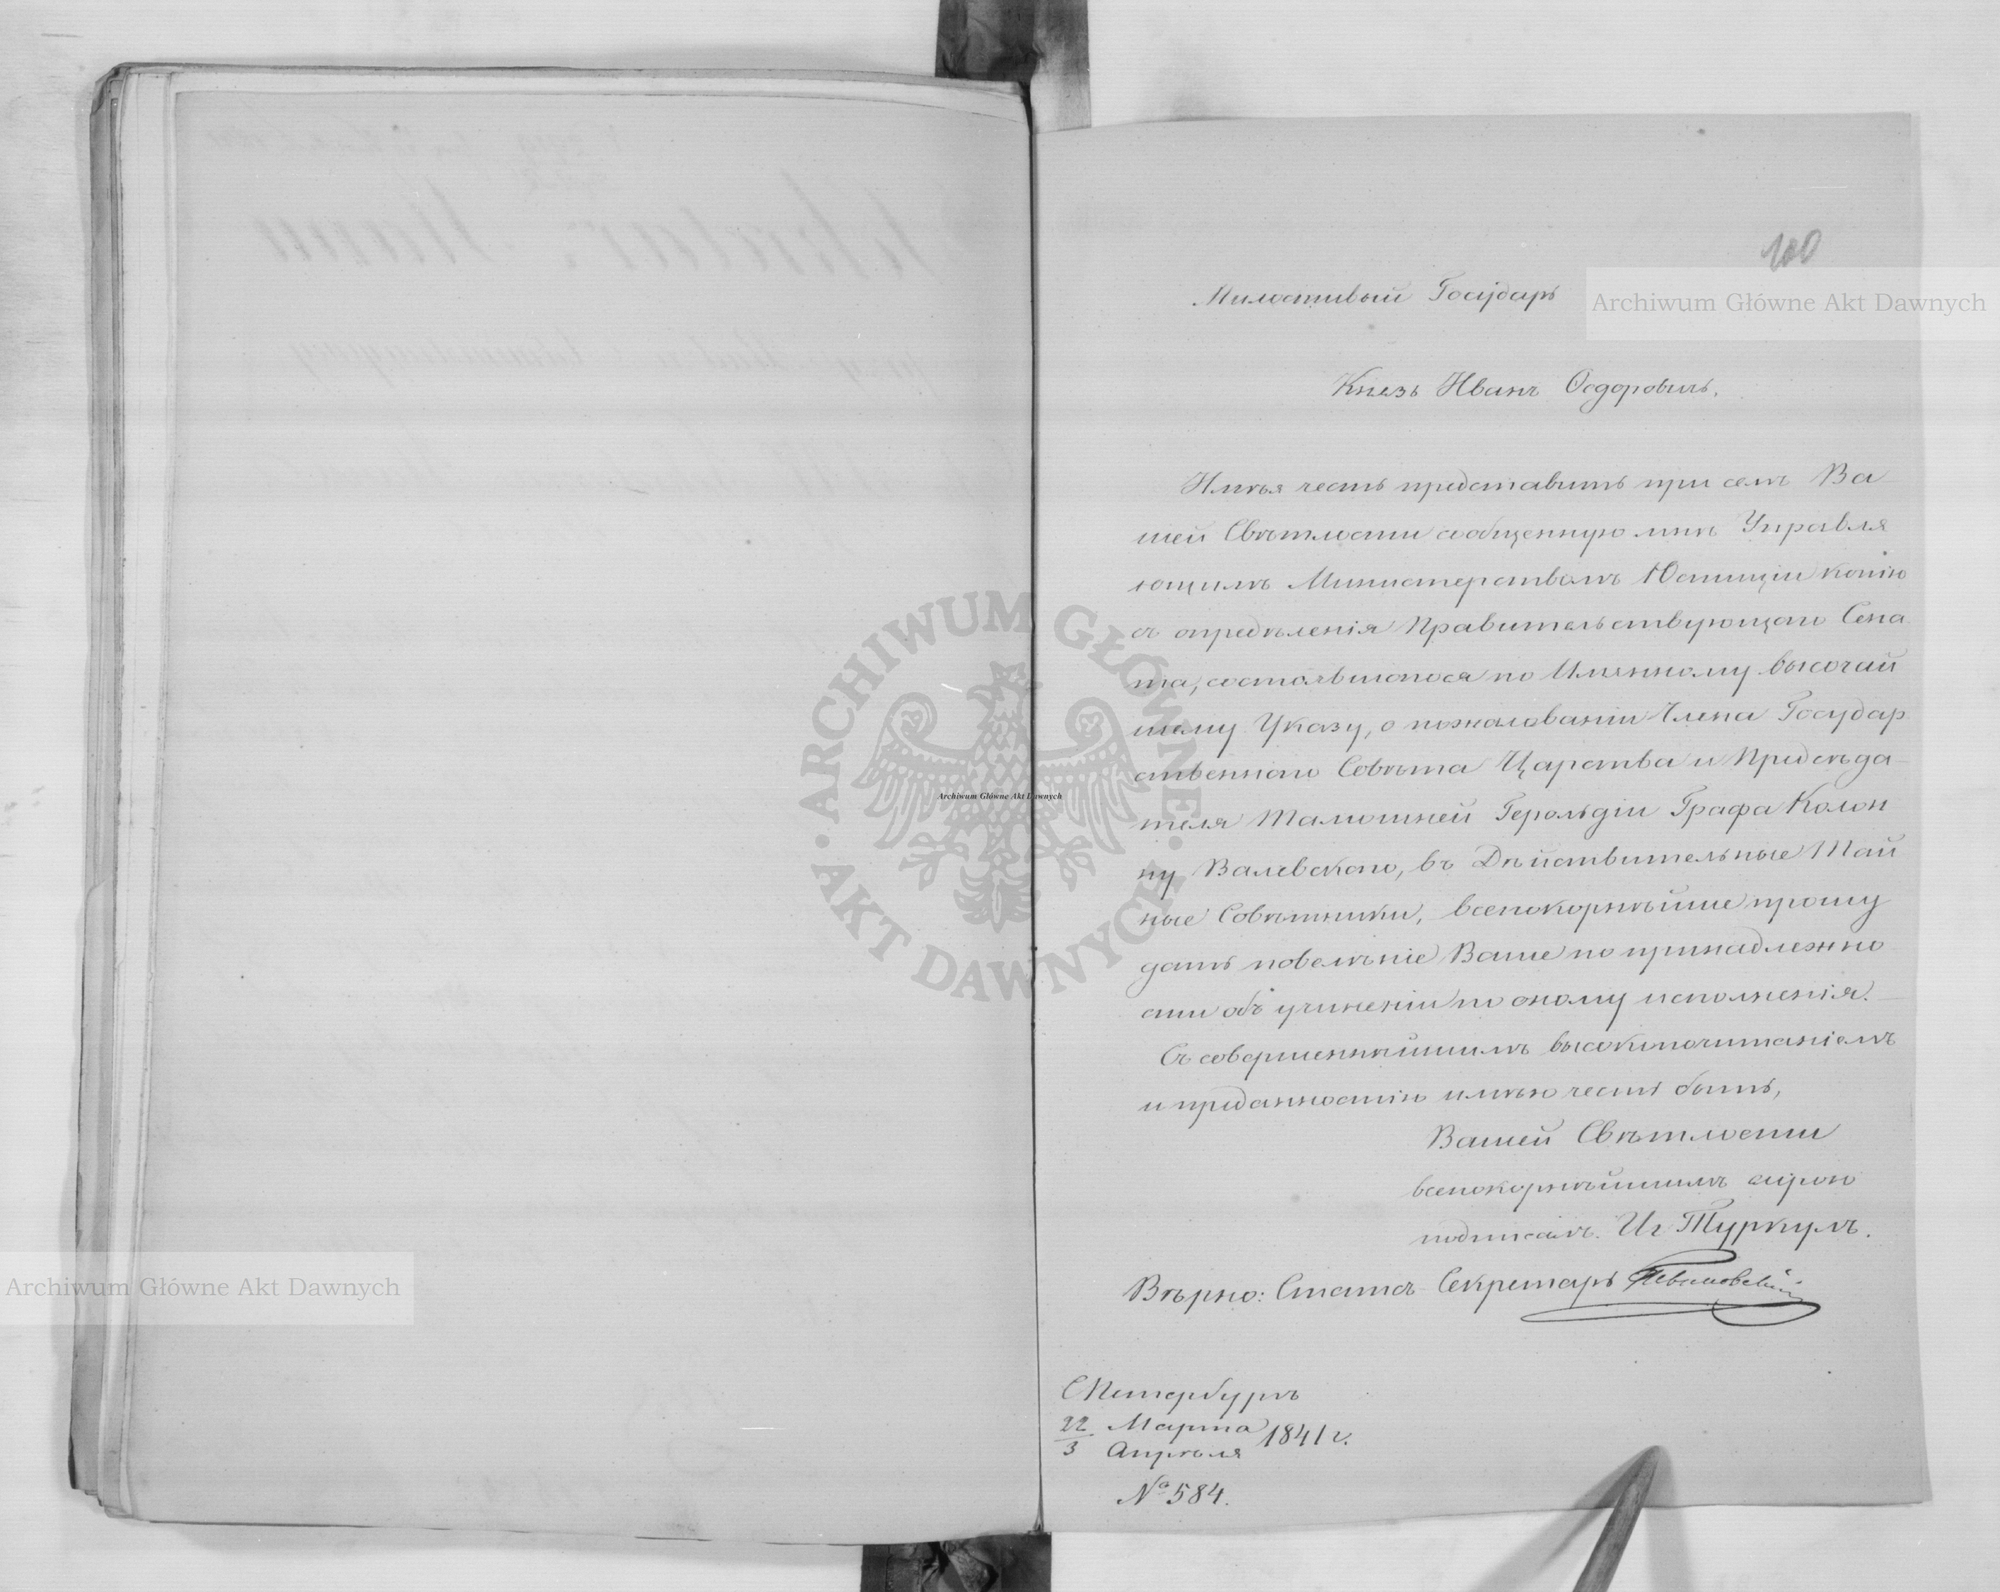 100
Милостивый Государь
Князь Иванъ Ѳедоровичъ.
Имѣя честь представить при семъ Ва
шей Свѣтлости сообщенную мнѣ Управля
ющимъ Министерствомъ Юстиціи копію
съ опредѣленія Правительствующаго Сена
та, состоявшагося по Имянному высочай
шему Указу, о пожалованіи Члена Государ
ственнаго Совѣта Царства и Предсѣда-
теля Тамошней Герольдіи Графа Колон
ну Валевскаго, въ Дѣйствительные Тай
ные Совѣтники, всепокорнѣйше прошу
дать повелѣніе Ваше по принадлежно
сти объ учиненіи по оному исполненія.
Съ совершеннѣйшимъ высокопочитаніемъ
и преданностію имѣю честь быть,
Вашей Свѣтлости
всепокорнѣйшимъ слугою
подписалъ. Иг Туркулъ.
Вѣрно: Статсъ Секретарь
СПетербургъ
22 Марта
3 Апрѣля 1841 г.
№ 584.
Archiwum Główne Akt Dawnych
Archiwum Główne Akt Dawnych
Archiwum Główne Akt Dawnych
ARCHIWUM GŁÓWNE · AKT DAWNYCH ·